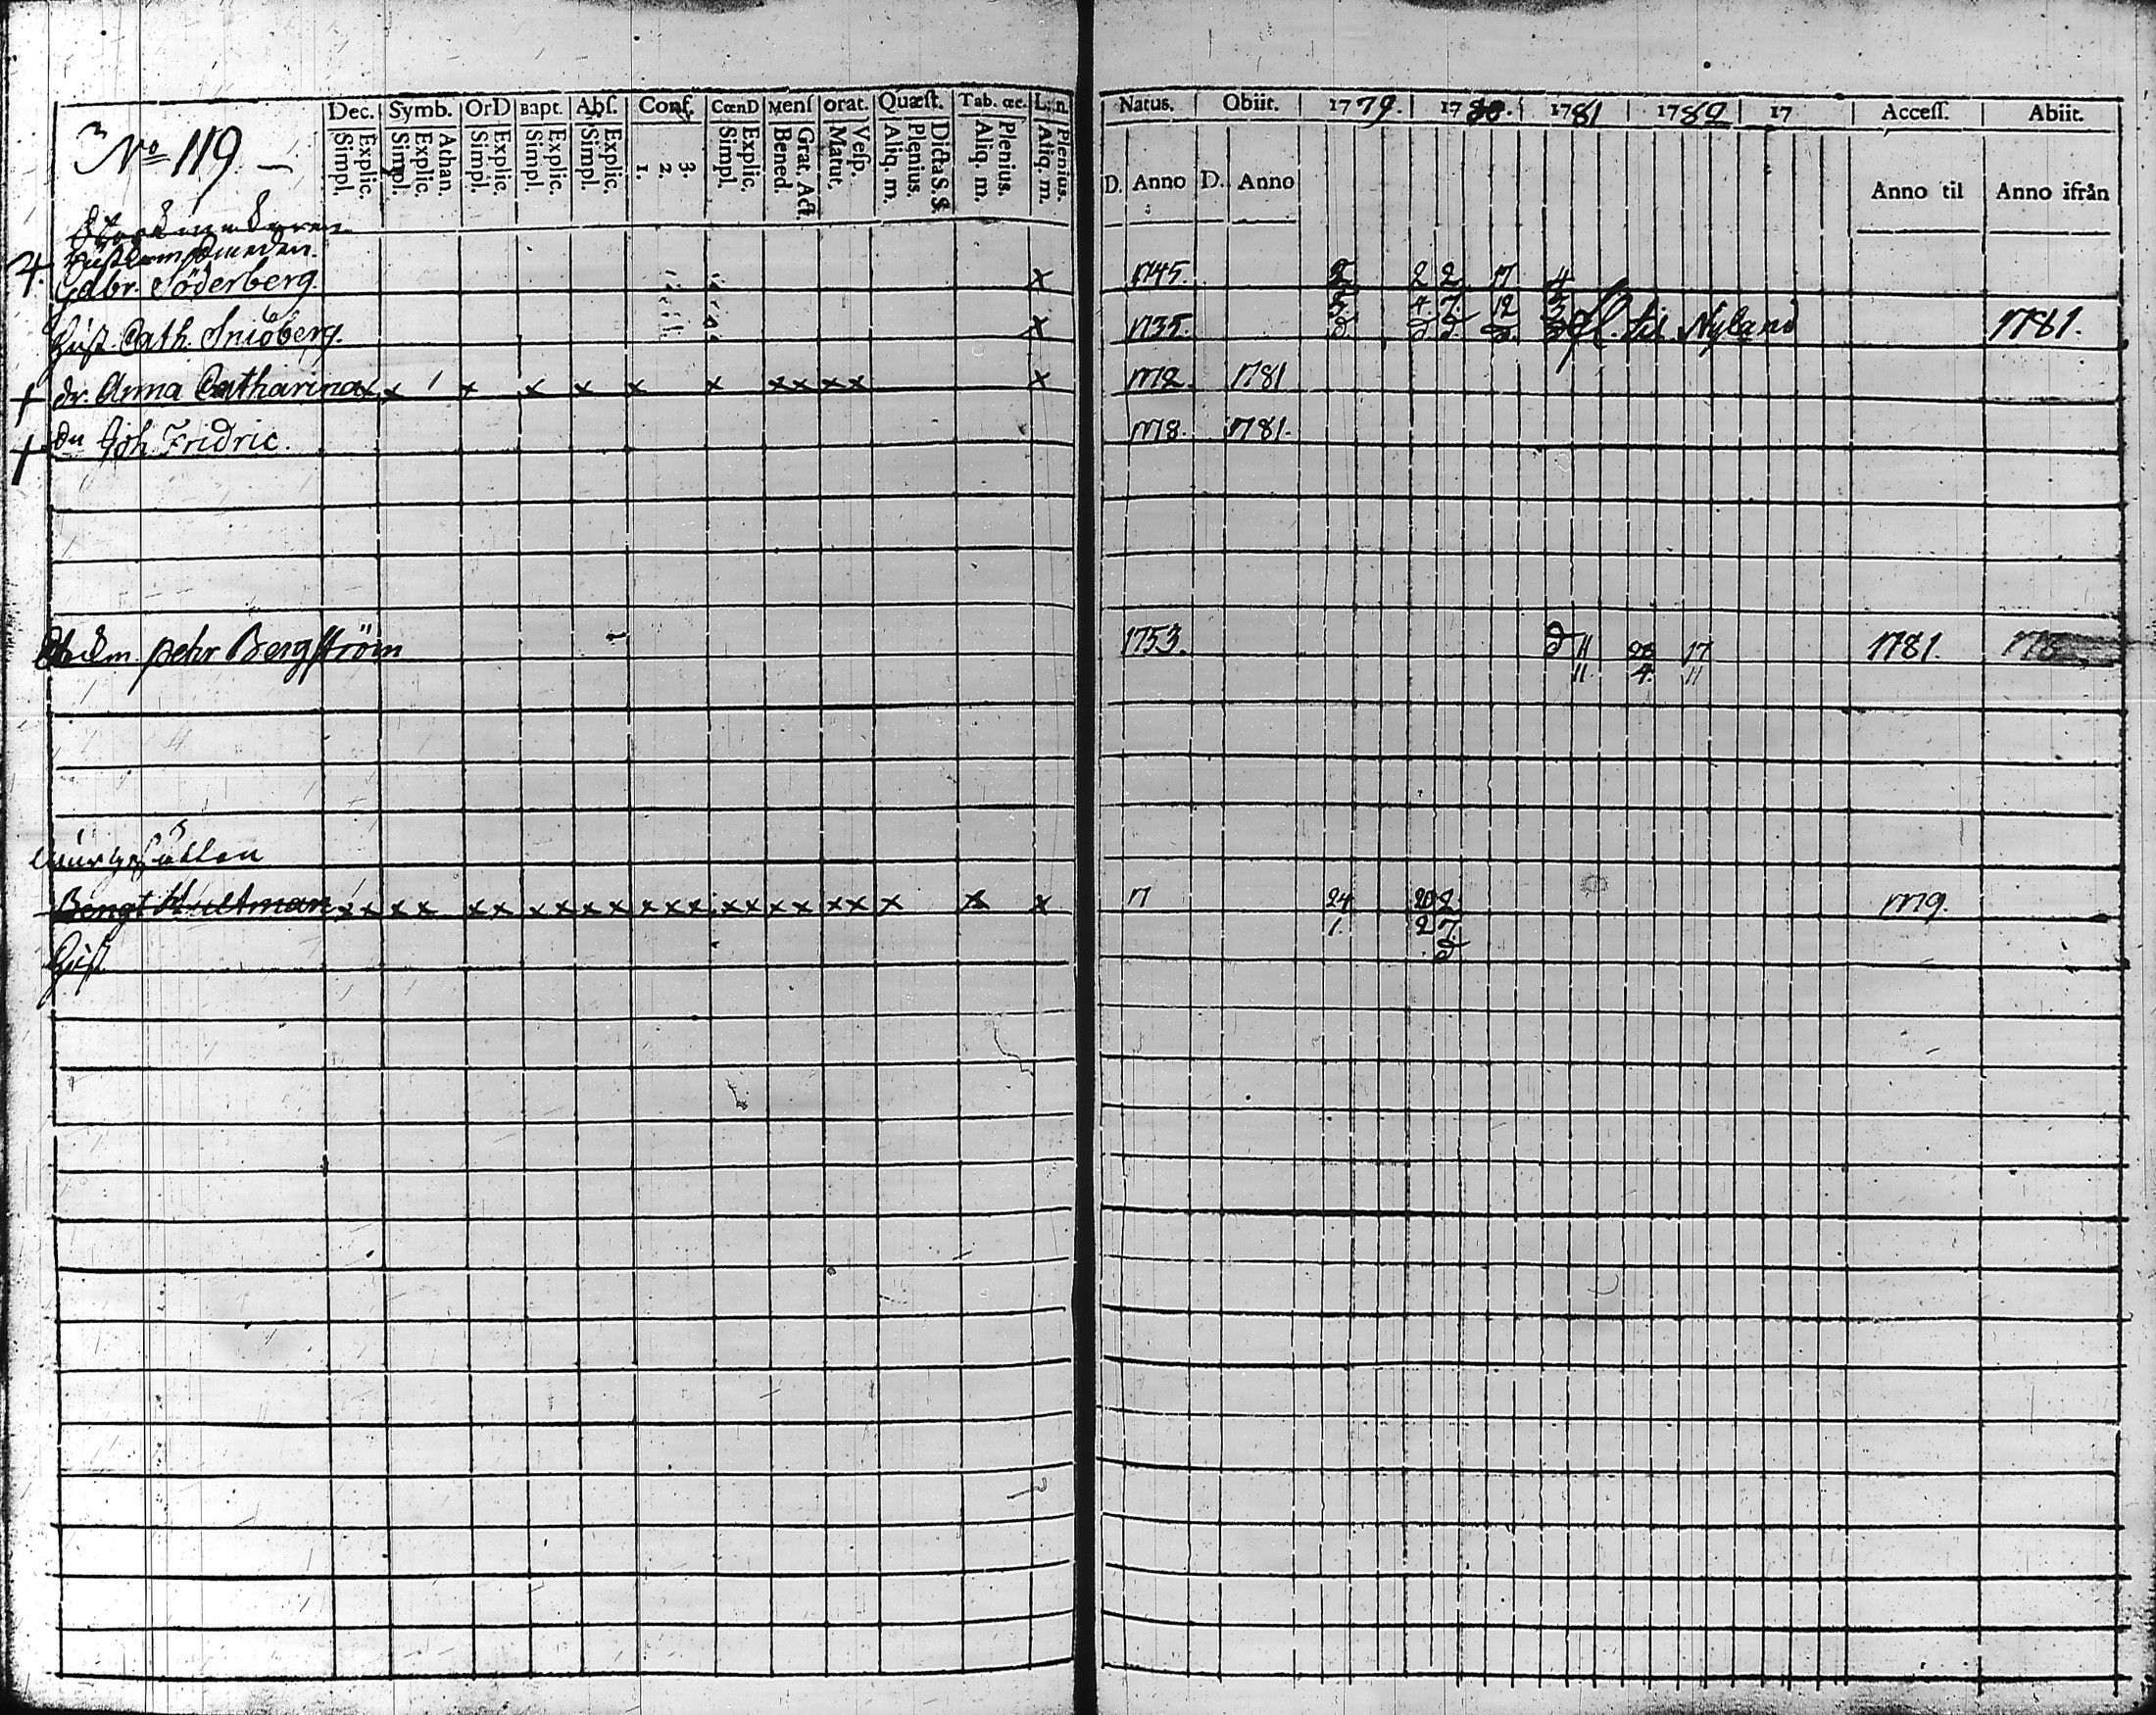 Dec. Symb. OrD Bapt. Abſ. Conf. CœnD Menſ orat. Quæſt. Tab. œc. L. n. Natus. Obiit. 1779. 1780. 1781 1782 17 Acceſſ. Abiit.
Simpl. Explic. Simpl. Explic. Athan. Simpl. Explic. Simpl. Explic. Simpl. Explic. 1. 2. 3. Simpl. Explic. Bened. Grat. Act. Matut. Veſp. Aliq. m. Plenius. Dicta S.S. Aliq. m. Plenius. Aliq. m. Plenius. D. Anno D. Anno Anno til Anno ifrån
No 119
Gabr. Söderberg. x 1745. 2 2 2 17 4
5. 4. 7. 12 3
Hust. Cath. Sniöberg. x 1735. gl. til Nyland 1781.
dr. Anna Catharina x x / x x x x x x x x x x 1772. 1781
Son Joh. Fridric. 1778. 1781.
pehr Bergſtröm 1753. 11 28 17 1781.
11. 4. 11
Bengt Hultman x x x x x x x x x x x x x x x x x x x x x x 17 24 20 2 1779.
1. 2 7.
Hust